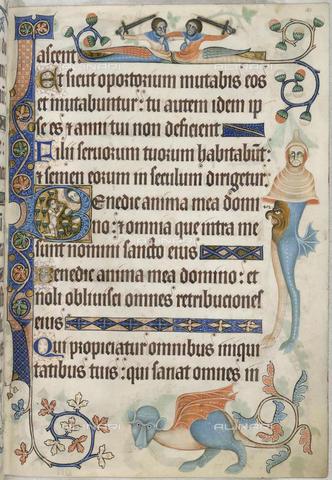 ascent
Et sicut opertorium mutabis eos
et mutabuntur: tu autem idem ip
se es et anni tui non deficient
Filii seruorum tuorum habitabunt:
et semen eorum in seculum dirigetur
Benedic anima mea domi
no: et omnia que intra me
sunt nomini sancto eius
Benedic anima mea domino: et
noli obliuisci omnes retribuciones
eius
Qui propiciatur omnibus iniqui
tatibus tuis: qui sanat omnes in
ALINARI
ALINARI